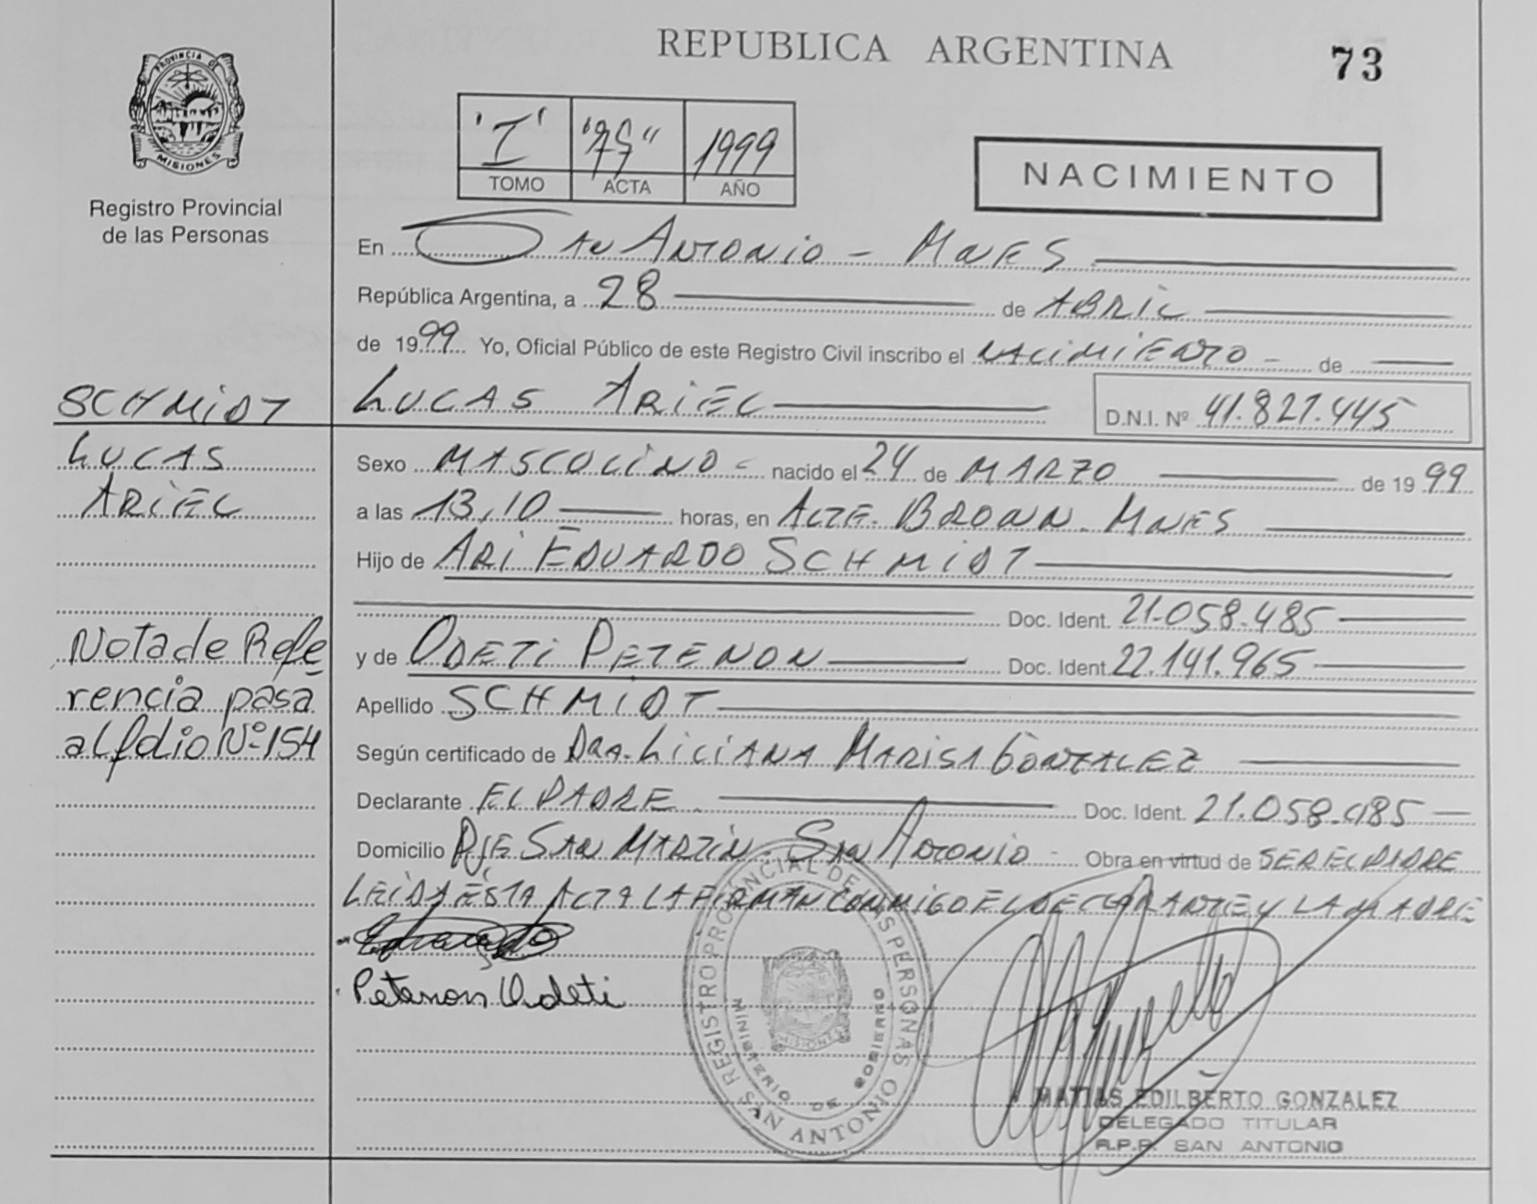 REPUBLICA ARGENTINA
73
PROVINCIA DE
MISIONES
Registro Provincial
de las Personas
'I' 1999
TOMO ACTA AÑO
NACIMIENTO
En San Antonio - Mnes
República Argentina, a 28 de ABRIL
de 1999 Yo, Oficial Público de este Registro Civil inscribo el NACIMIENTO - de
SCHMIDT LUCAS ARIEL D.N.I. Nº 41.827.445
LUCAS
ARIEL
Sexo MASCULINO - nacido el 24 de MARZO de 1999
a las 13,10 horas, en ALTE. BROWN - MNES
Hijo de ARI EDUARDO SCHMIDT
Doc. Ident. 21.058.485
y de ODETI PETENON Doc. Ident. 22.141.965
Apellido SCHMIDT
Según certificado de Dra. LILIANA MARISA GONZALEZ
Declarante EL PADRE Doc. Ident. 21.058.485
Domicilio Pje SAN MARTIN - SAN ANTONIO - Obra en virtud de SER EL PADRE
LEIDA ESTA ACTA LA FIRMAN CONMIGO EL DECLARANTE Y LA MADRE
Petenon Odeti
Nota de Refe
rencia pasa
al folio Nº 154
REGISTRO PROVINCIAL DE LAS PERSONAS
MINISTERIO DE GOBIERNO
MISIONES
SAN ANTONIO
MATIAS EDILBERTO GONZALEZ
DELEGADO TITULAR
R.P.P. SAN ANTONIO